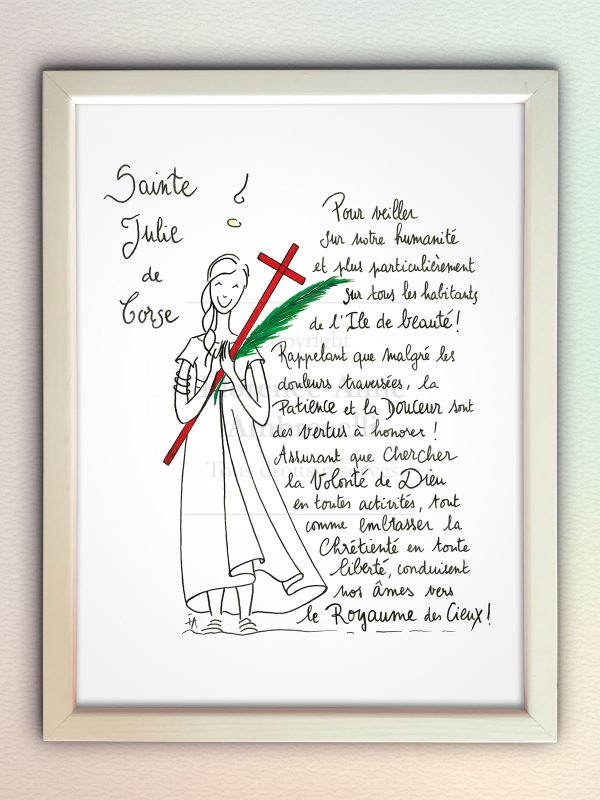 Sainte
Julie
de
Corse
Pour veiller
sur notre humanité
et plus particulièrement
sur tous les habitants
de l'Ile de beauté !
Rappelant que malgré les
douleurs traversées, la
Patience et la Douceur sont
des vertus à honorer !
Assurant que chercher
la Volonté de Dieu
en toutes activités, tout
comme embrasser la
Chrétienté en toute
liberté, conduisent
nos âmes vers
le Royaume des Cieux !
Copyright
Tous droits réservés